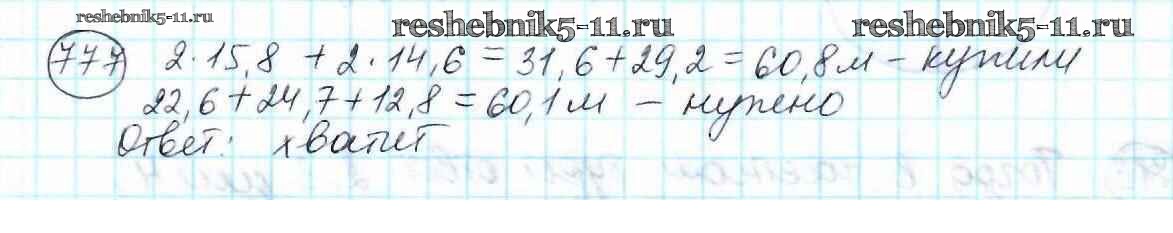 reshebnik5-11.ru
reshebnik5-11.ru
reshebnik5-11.ru
777 2·15,8 + 2·14,6 = 31,6 + 29,2 = 60,8 м – купили
22,6 + 24,7 + 12,8 = 60,1 м – нужно
Ответ: хватит
reshebnik5-11.ru
reshebnik5-11.ru